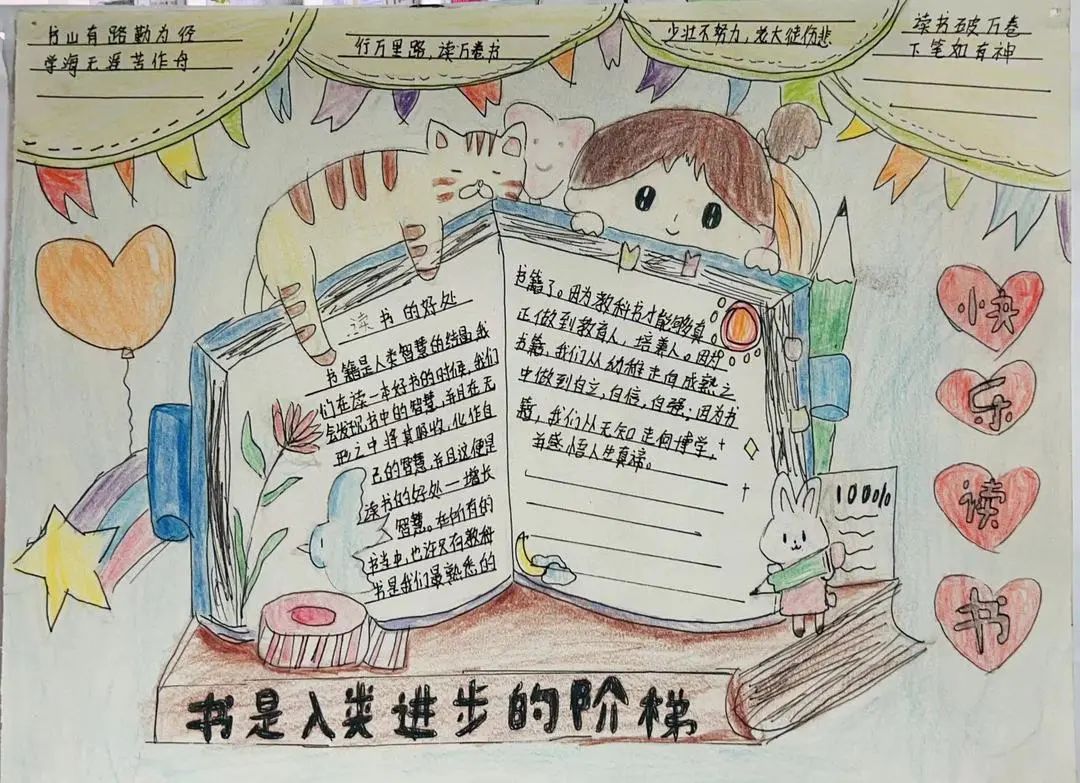 书山有路勤为径
学海无涯苦作舟
行万里路,读万卷书
少壮不努力,老大徒伤悲
读书破万卷
下笔如有神
读书的好处
书籍是人类智慧的结晶,我
们在读一本好书的时候,我们
会发现书中的智慧,并且在无
形之中将其吸收,化作自
己的智慧,并且这便是
读书的好处一增长
智慧。在所有的
书当中,也许只有教科
书是我们最熟悉的
书籍了。因为教科书才能够真
正做到教育人,培养人。因为
书籍,我们从幼稚走向成熟之
中做到自立,自信,自强;因为书
籍,我们从无知走向博学,
并感悟人生真谛。
100%
快
乐
读
书
书是人类进步的阶梯